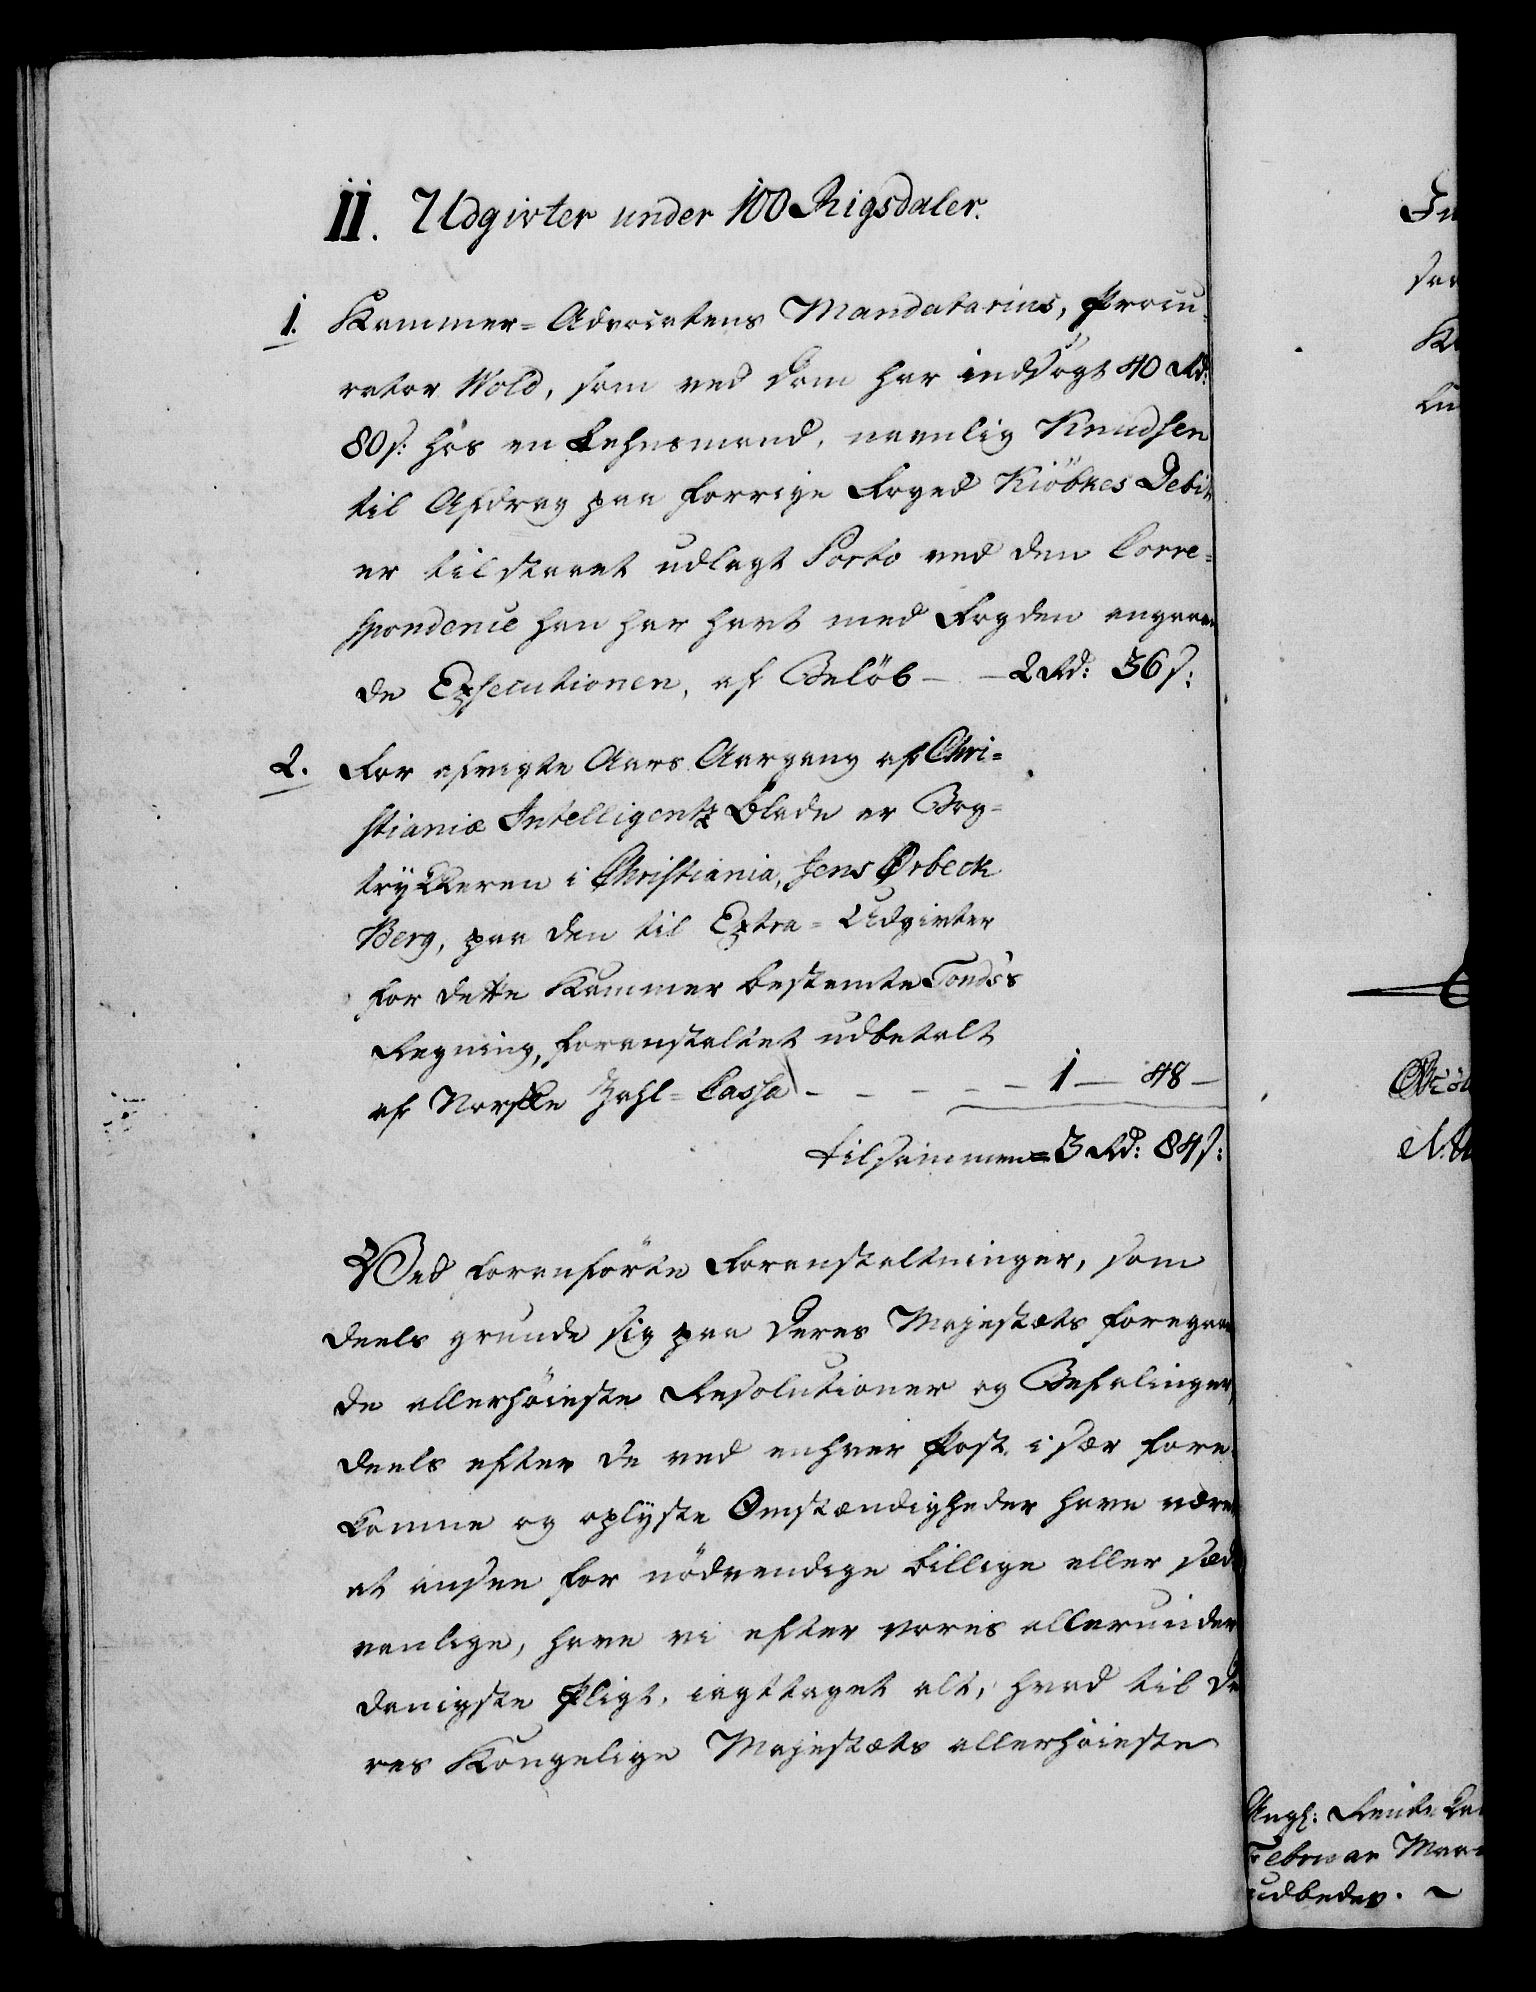 II. Udgivter under 100 Rigsdaler.
1. Kammer=Advocatens Mandatarius, Procu-
rator Wold, som ved Dom har indsögt 40 Rd:
80 s: hos en Lehnsmand, navnlig Knudsen
til Afdrag paa forrige Foged Kiöbkes Debit
er tilstaaet udlagt Porto ved den Corre=
spondence han har havt med Fogden angaaen
de Exsecutionen, af Belöb - - 2 Rd: 36 s:
2. For afvigte Aars Aargang af Chri=
stianiæ Intelligentz Blade er Bog=
trykkeren i Christiania, Jens Örbeck
Berg, paa den til Extra=Udgivter
for dette Kammer bestemte Fonds's
Regning, foranstaltet udbetalt
af Norske Zahl=Cassa - - - - - 1 - 48 -
tilsammen = 3 Rd: 84 s:
Ved foranförte Foranstaltninger, som
deels grunde sig paa Deres Majestæts foregaaen
de allerhöieste Resolutioner og Befalinger,
deels efter de ved enhver Post især fore-
komne og oplyste Omstændigheder have været
at ansee for nödvendige billige eller sæd
vanlige, have vi efter vores allerunder
danigste Pligt, iagttaget alt, hvad til De
res Kongelige Majestæts allerhöieste
Februar
udbedes. ~